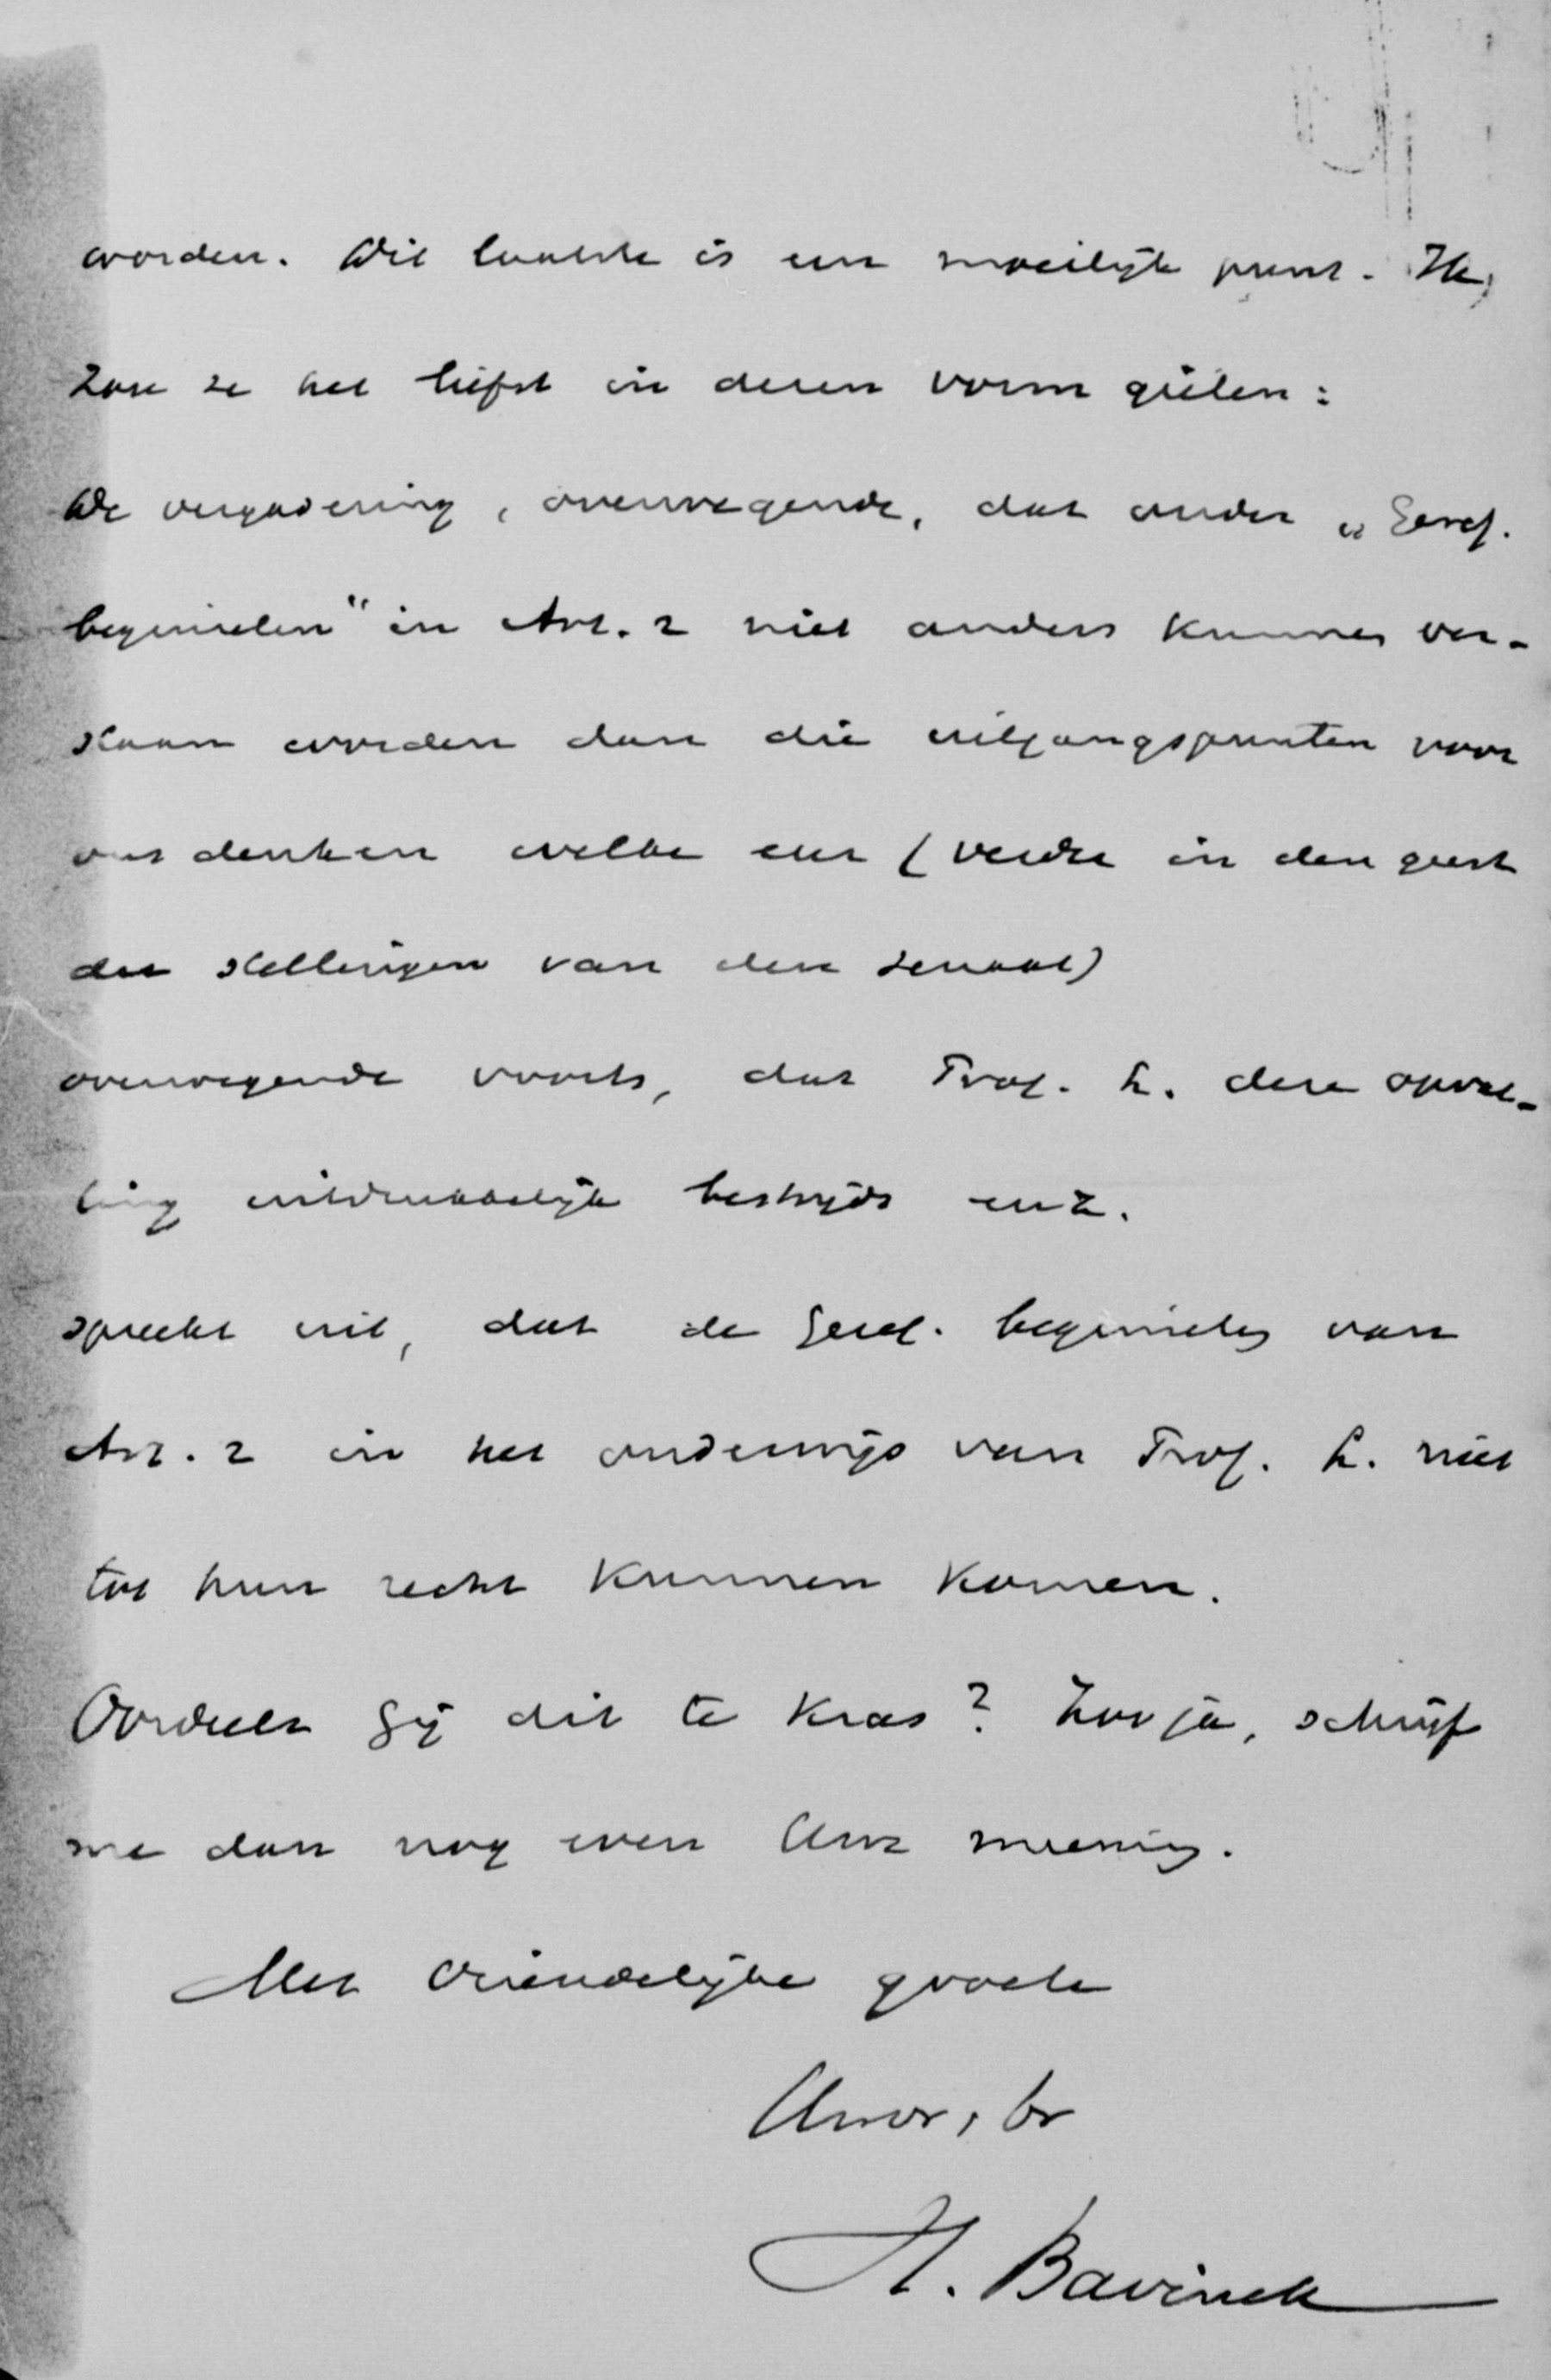 worden. Dit laatste is een moeilijk punt. Ik
zou ze het liefst in dezen vorm gieten:
De vergadering, overwegende, dat onder „Geref.
beginselen" in Art. 2 niet anders kunnen ver-
staan worden dan die uitgangspunten voor
ons denken welke enz (verder in den geest
der stellingen van den senaat)
overwegende voorts, dat Prof. L. deze opvat-
ting uitdrukkelijk bestrijdt enz.
spreekt uit, dat de Geref. beginselen van
Art. 2 in het onderwijs van Prof. L. niet
tot hun recht kunnen komen.
Oordeelt gij dit te kras? Zoo ja, schrijf
me dan nog even Uwe meening.
Met vriendelijke groete
Uw br
H. Bavinck